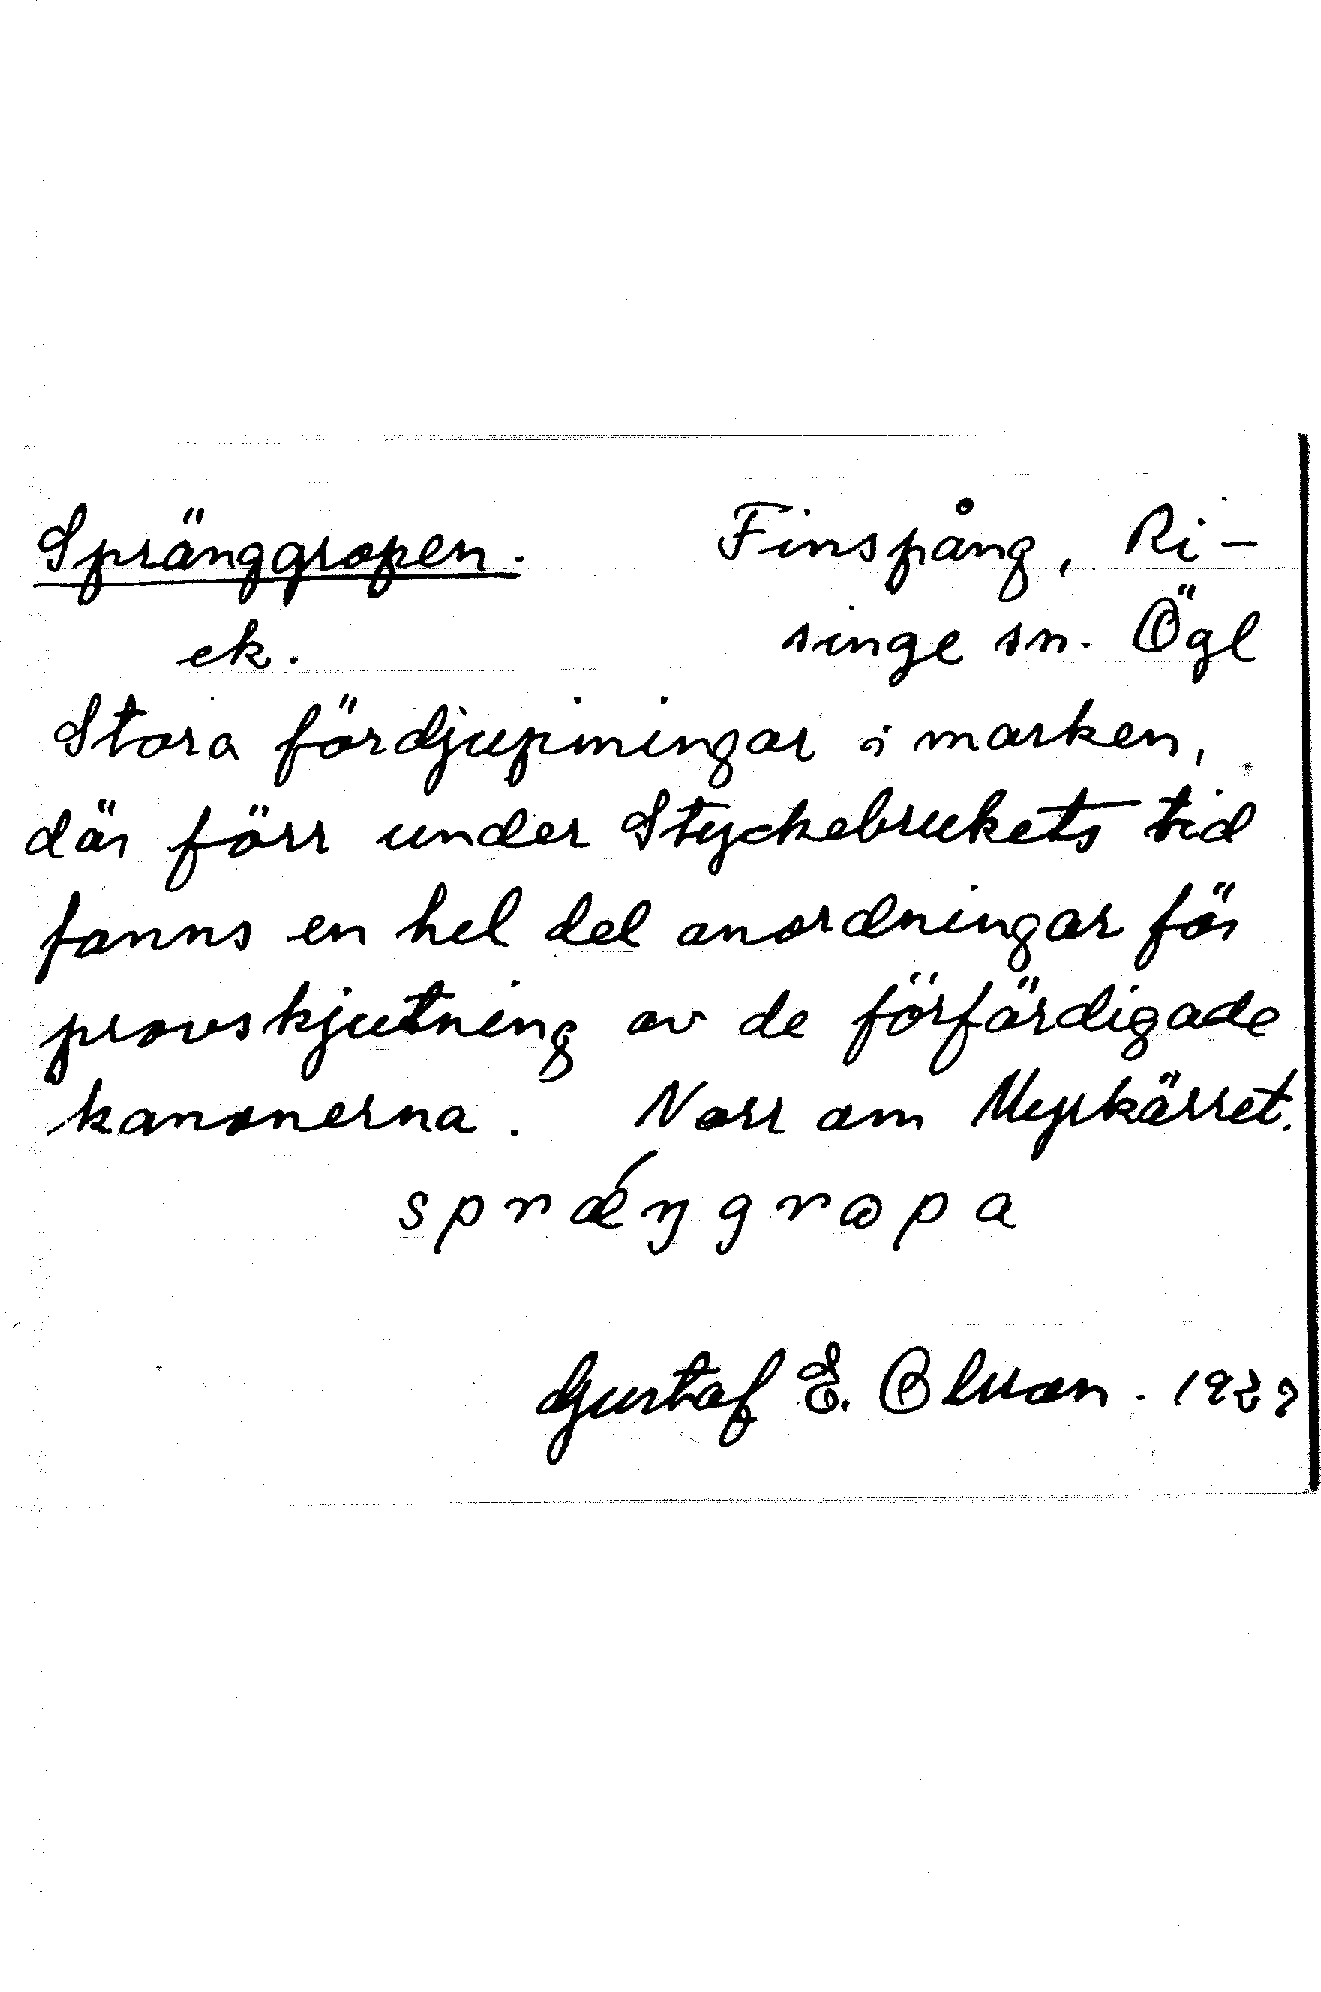 Spränggropen. Finspång, Ri-
ek. singe sn. Ögl
Stora fördjupningar i marken,
där förr under Styckebrukets tid
fanns en hel del anordningar för
provskjutning av de förfärdigade
kanonerna. Norr om Myrkärret.
sprǽŋgrɷpa
Gustaf E. Olsson. 1929